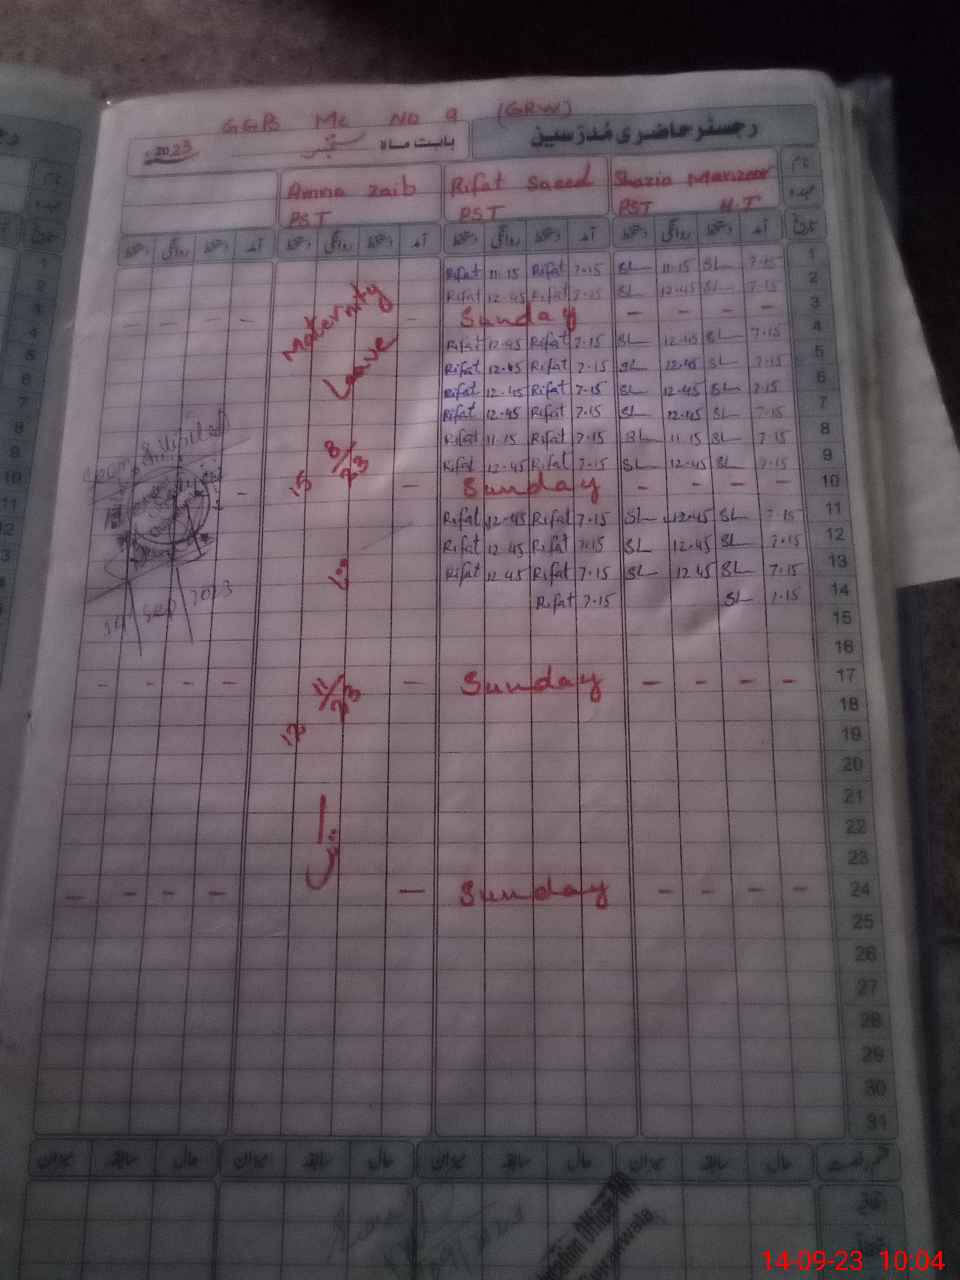 GGPS MC NO 9 (GRW)
رجسٹر حاضری مُدرسین
بابت ماہ ستمبر 2023
نام
عہدہ
Shazia Manzoor
PST H.T
Rifat Saeed
PST
Amna Zaib
PST
تاریخ آمد دستخط روانگی دستخط آمد دستخط روانگی دستخط آمد دستخط روانگی دستخط آمد دستخط روانگی دستخط
Rifat 11.15 Rifat 7.15 SL 11.15 SL 7.15 1
Rifat 12.45 Rifat 7.15 SL 12.45 SL 7.15 2
- - - - - Sunday - - - - 3
Rifat 12.45 Rifat 7.15 SL 12.45 SL 7.15 4
Rifat 12.45 Rifat 7.15 SL 12.45 SL 7.15 5
Rifat 12.45 Rifat 7.15 SL 12.45 SL 7.15 6
Rifat 12.45 Rifat 7.15 SL 12.45 SL 7.15 7
Rifat 11.15 Rifat 7.15 SL 11.15 SL 7.15 8
Rifat 12.45 Rifat 7.15 SL 12.45 SL 7.15 9
- - Sunday - - - - 10
Rifat 12.45 Rifat 7.15 SL 12.45 SL 7.15 11
Rifat 12.45 Rifat 7.15 SL 12.45 SL 7.15 12
Rifat 12.45 Rifat 7.15 SL 12.45 SL 7.15 13
Rifat 7.15 SL 7.15 14
15
16
- - - - - Sunday - - - - 17
18
19
20
21
22
23
- - - - - Sunday - - - - 24
25
26
27
28
29
30
31
Maternity
Leave
15 8/23
11/23
تک
Sep 2023
میزان سابقہ حال میزان سابقہ حال میزان سابقہ حال میزان سابقہ حال
اتفاقی
14-09-23 10:04